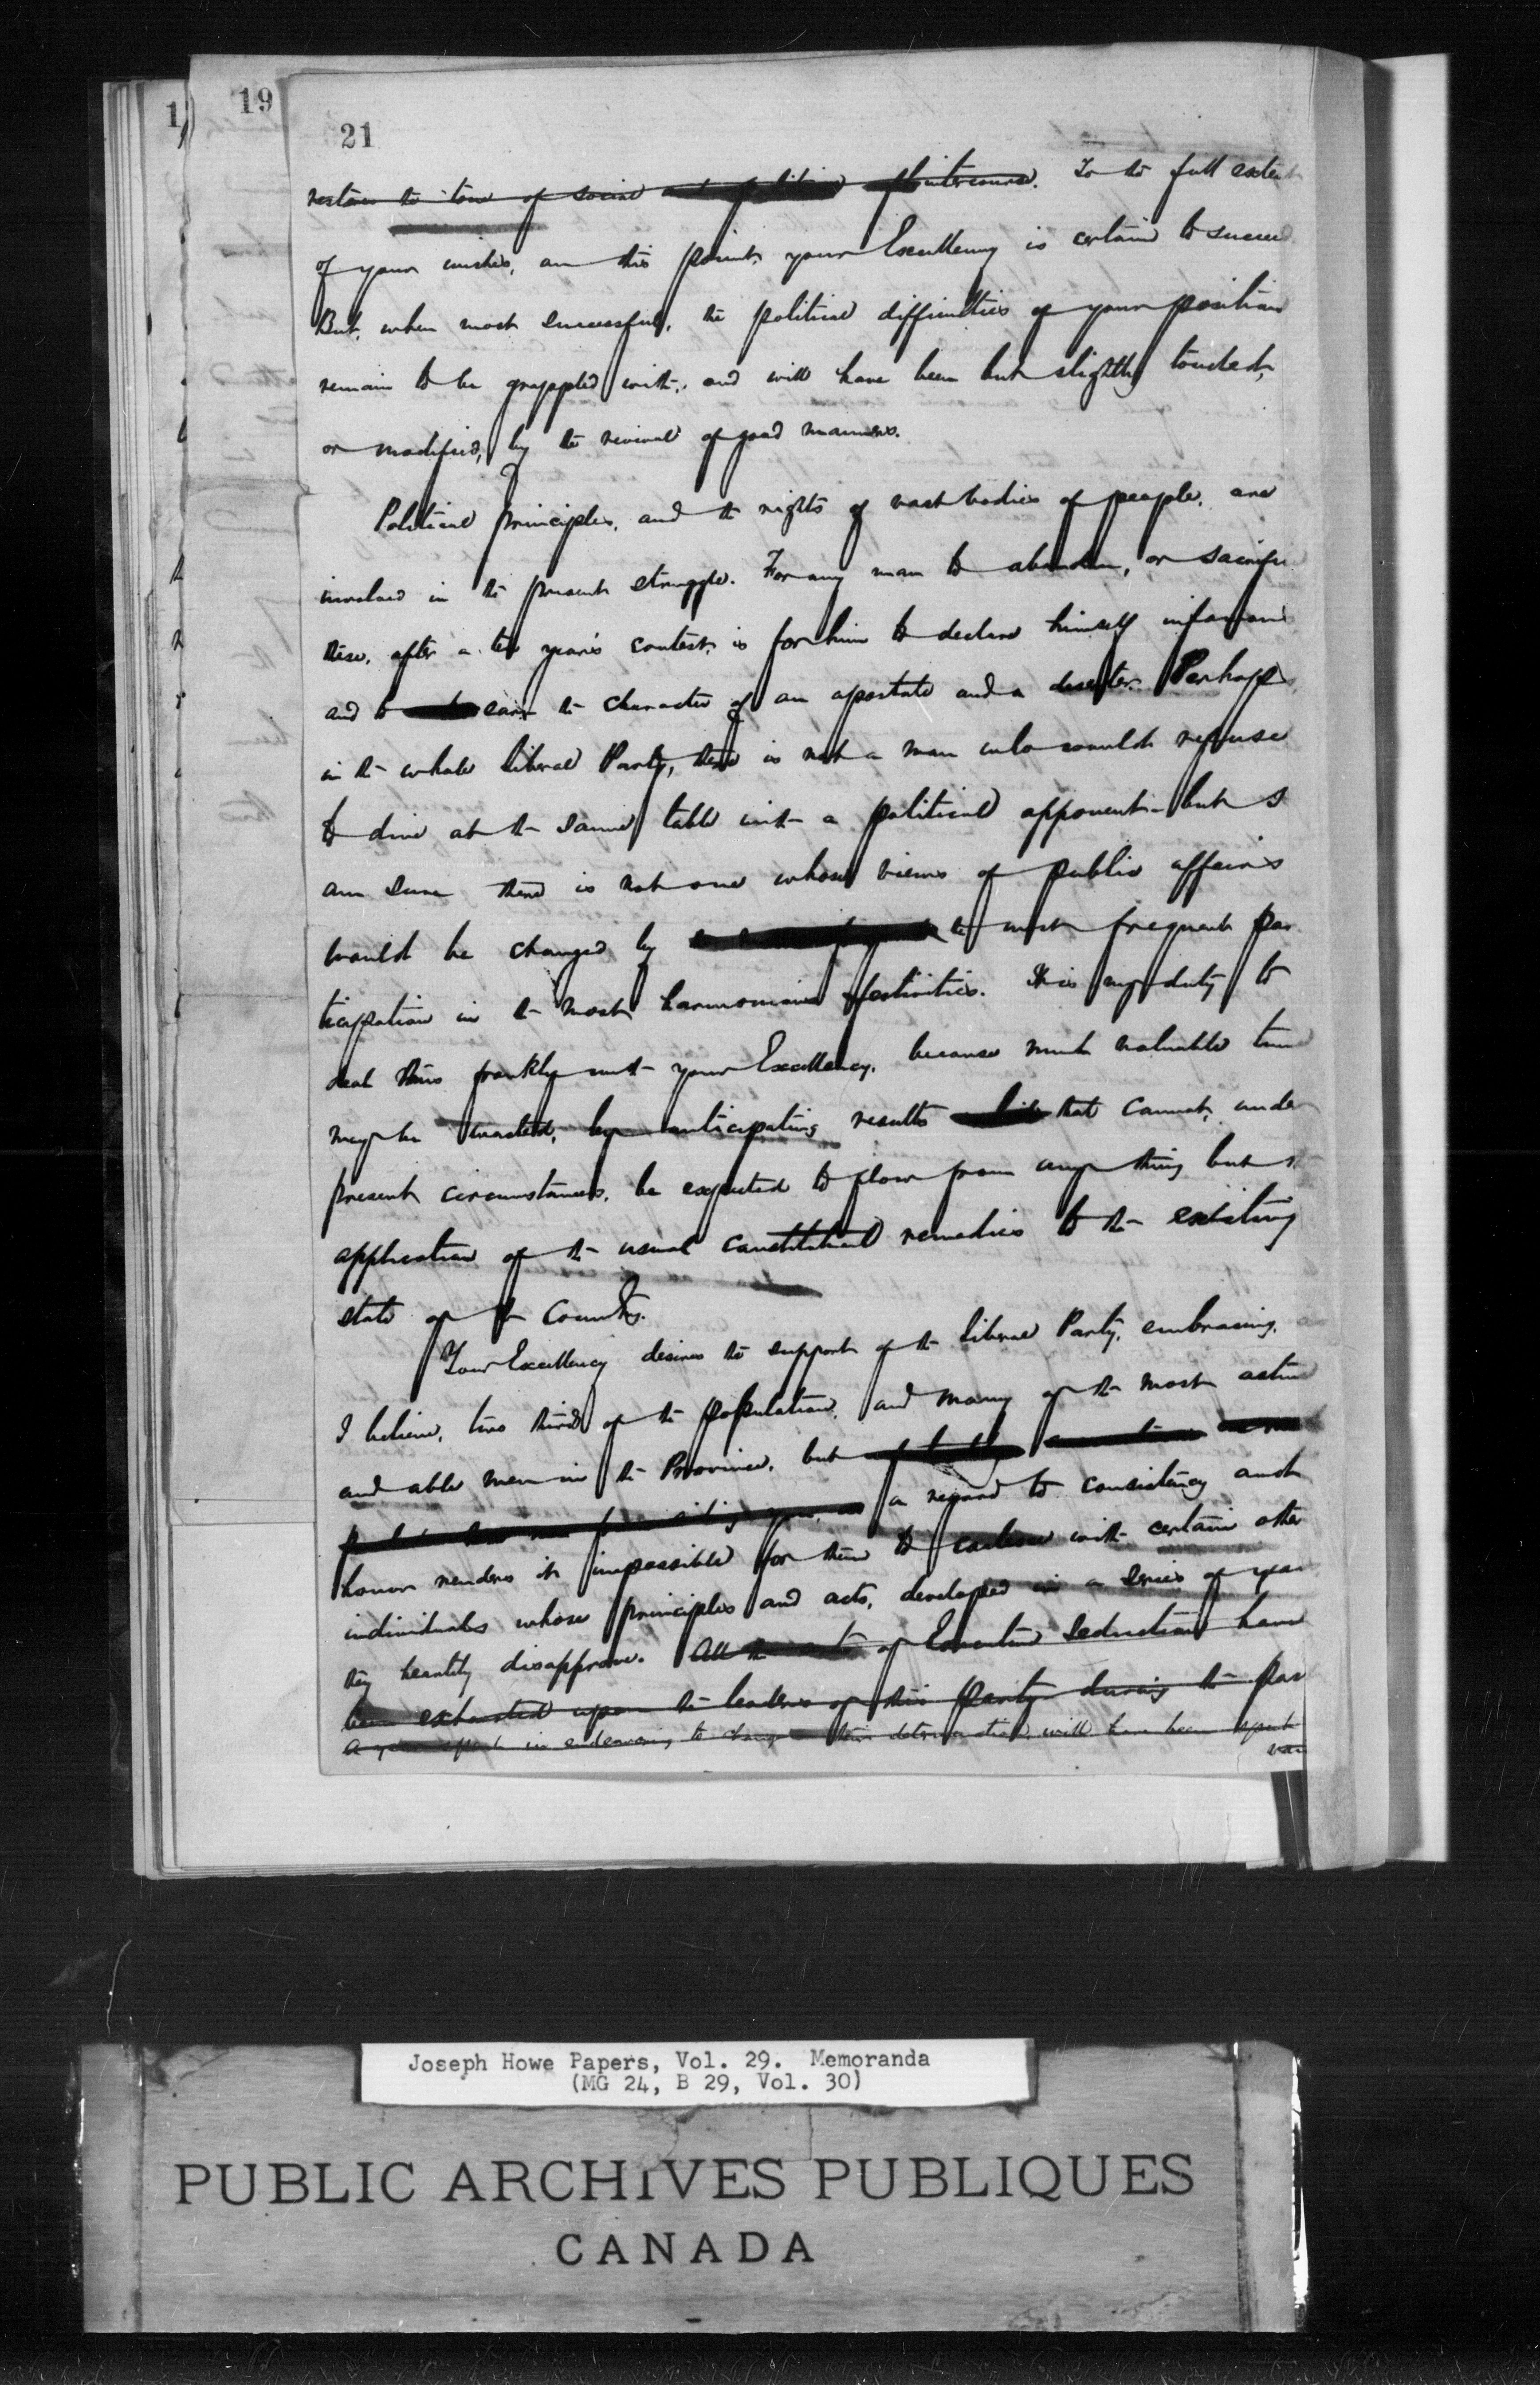 1
19
21
restore the tone of social and political intercourse. To the full extent
of your wishes, on this point, your Excellency is certain to succeed.
But, when most successful, the political difficulties of your position
remain to be grappled with, and will have been but slightly touched,
or modified, by the revival of good manners.
Political principles, and the rights of vast bodies of people, are
involved in the present struggle. For any man to abandon, or sacrifice
these, after a ten year's contest, is for him to declare himself infamous
and to earn the character of an apostate and a deserter. Perhaps
in the whole Liberal Party, there is not a man who would refuse
to dine at the same table with a political opponent - but I
am sure there is not one whose views of public affairs
would be changed by the most frequent par
ticipation in the most harmonious festivities. It is my duty to
deal thus frankly with your Excellency, because much valuable time
may be wasted, by anticipating results that cannot, under
present circumstances, be expected to flow from any thing but the
application of the usual constitutional remedies to the existing
state of the Country.
Your Excellency desires the support of the Liberal Party, embracing, as
I believe, two thirds of the population, and many of the most active
and able men in the Province, but
a regard to consistency and
honor renders it impossible for them to coalesce with certain other
individuals whose principles and acts, developed in a series of years
they heartily disapprove. All the arts of Executive Seduction have
been exhausted upon the leaders of this party during the past
A year spent in endeavoring to change their determination, will have been spent
in vain
Joseph Howe Papers, Vol. 29. Memoranda
(MG 24, B 29, Vol. 30)
PUBLIC ARCHIVES PUBLIQUES
CANADA